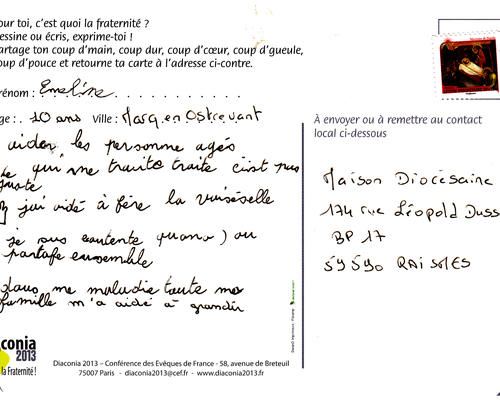 our toi, c'est quoi la fraternité ?
essine ou écris, exprime-toi !
artage ton coup d'main, coup dur, coup d'cœur, coup d'gueule,
oup d'pouce et retourne ta carte à l'adresse ci-contre.
rénom : Emeline
ge : 10 ans Ville : Marq en Ostrevant
aider les personne agés
qui me traite traite c'est pas
juste
j'ai aidé à fère la vaiséselle
je sus contente quand ) on
partage ensemble
dans me maladie toute ma
famille m'a aidé à grandir
À envoyer ou à remettre au contact
local ci-dessous
Maison Diocésaine
174 rue Léopold Duss
BP 17
59590 RAISMES
conia
2013
la Fraternité !
Diaconia 2013 – Conférence des Evêques de France - 58, avenue de Breteuil
75007 Paris - diaconia2013@cef.fr - www.diaconia2013.fr